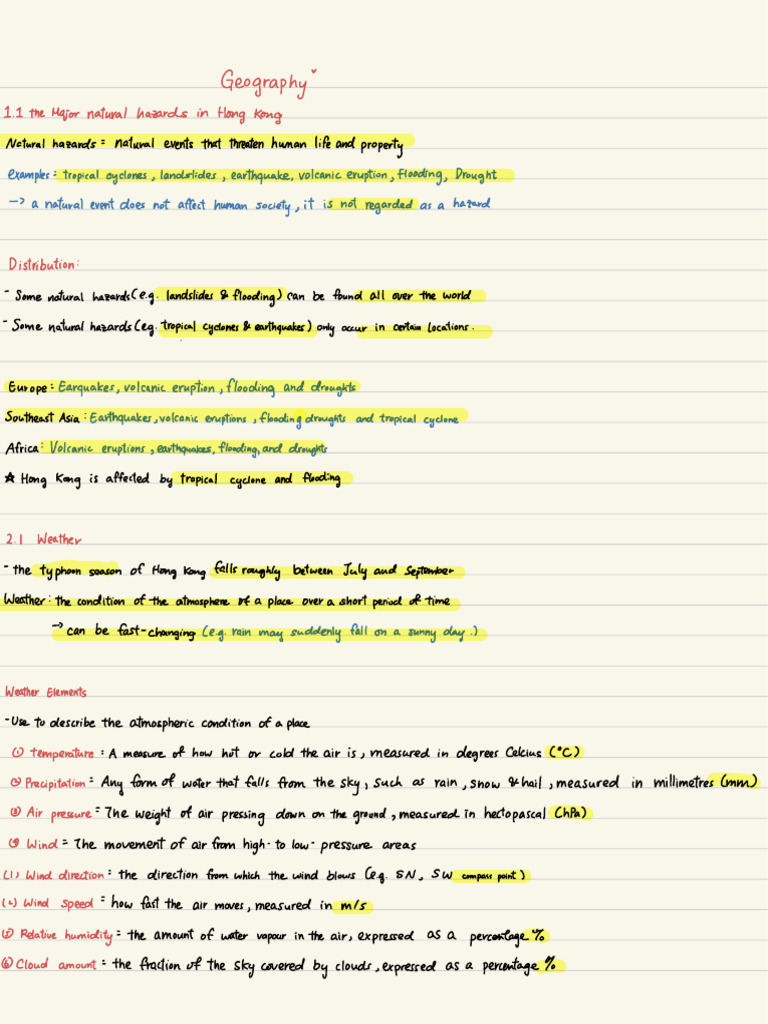 Geography
1.1 the Major natural hazards in Hong Kong
Natural hazards = natural events that threaten human life and property
examples: tropical cyclones, landslides, earthquake, volcanic eruption, flooding, Drought
-> a natural event does not affect human society, it is not regarded as a hazard
Distribution:
- Some natural hazards (e.g. landslides & flooding) can be found all over the world
- Some natural hazards (eg. tropical cyclones & earthquakes) only occur in certain locations.
Europe: Earquakes, volcanic eruption, flooding and droughts
Southeast Asia: Earthquakes, volcanic eruptions, flooding droughts and tropical cyclone
Africa: Volcanic eruptions, earthquakes, flooding, and droughts
☆ Hong Kong is affected by tropical cyclone and flooding
2.1 Weather
- the typhoon season of Hong Kong falls roughly between July and September
Weather: the condition of the atmosphere of a place over a short period of time
-> can be fast-changing (e.g. rain may suddenly fall on a sunny day.)
Weather Elements
- Use to describe the atmospheric condition of a place
① temperature: A measure of how hot or cold the air is, measured in degrees Celcius (°C)
② Precipitation= Any form of water that falls from the sky, such as rain, snow & hail, measured in millimetres (mm)
③ Air pressure= The weight of air pressing down on the ground, measured in hectopascal (hPa)
④ Wind= The movement of air from high- to low- pressure areas
(1) Wind direction: the direction from which the wind blows (eg. SN, SW compass point)
(2) Wind speed = how fast the air moves, measured in m/s
⑤ Relative humidity= the amount of water vapour in the air, expressed as a percentage %
⑥ Cloud amount = the fraction of the sky covered by clouds, expressed as a percentage %